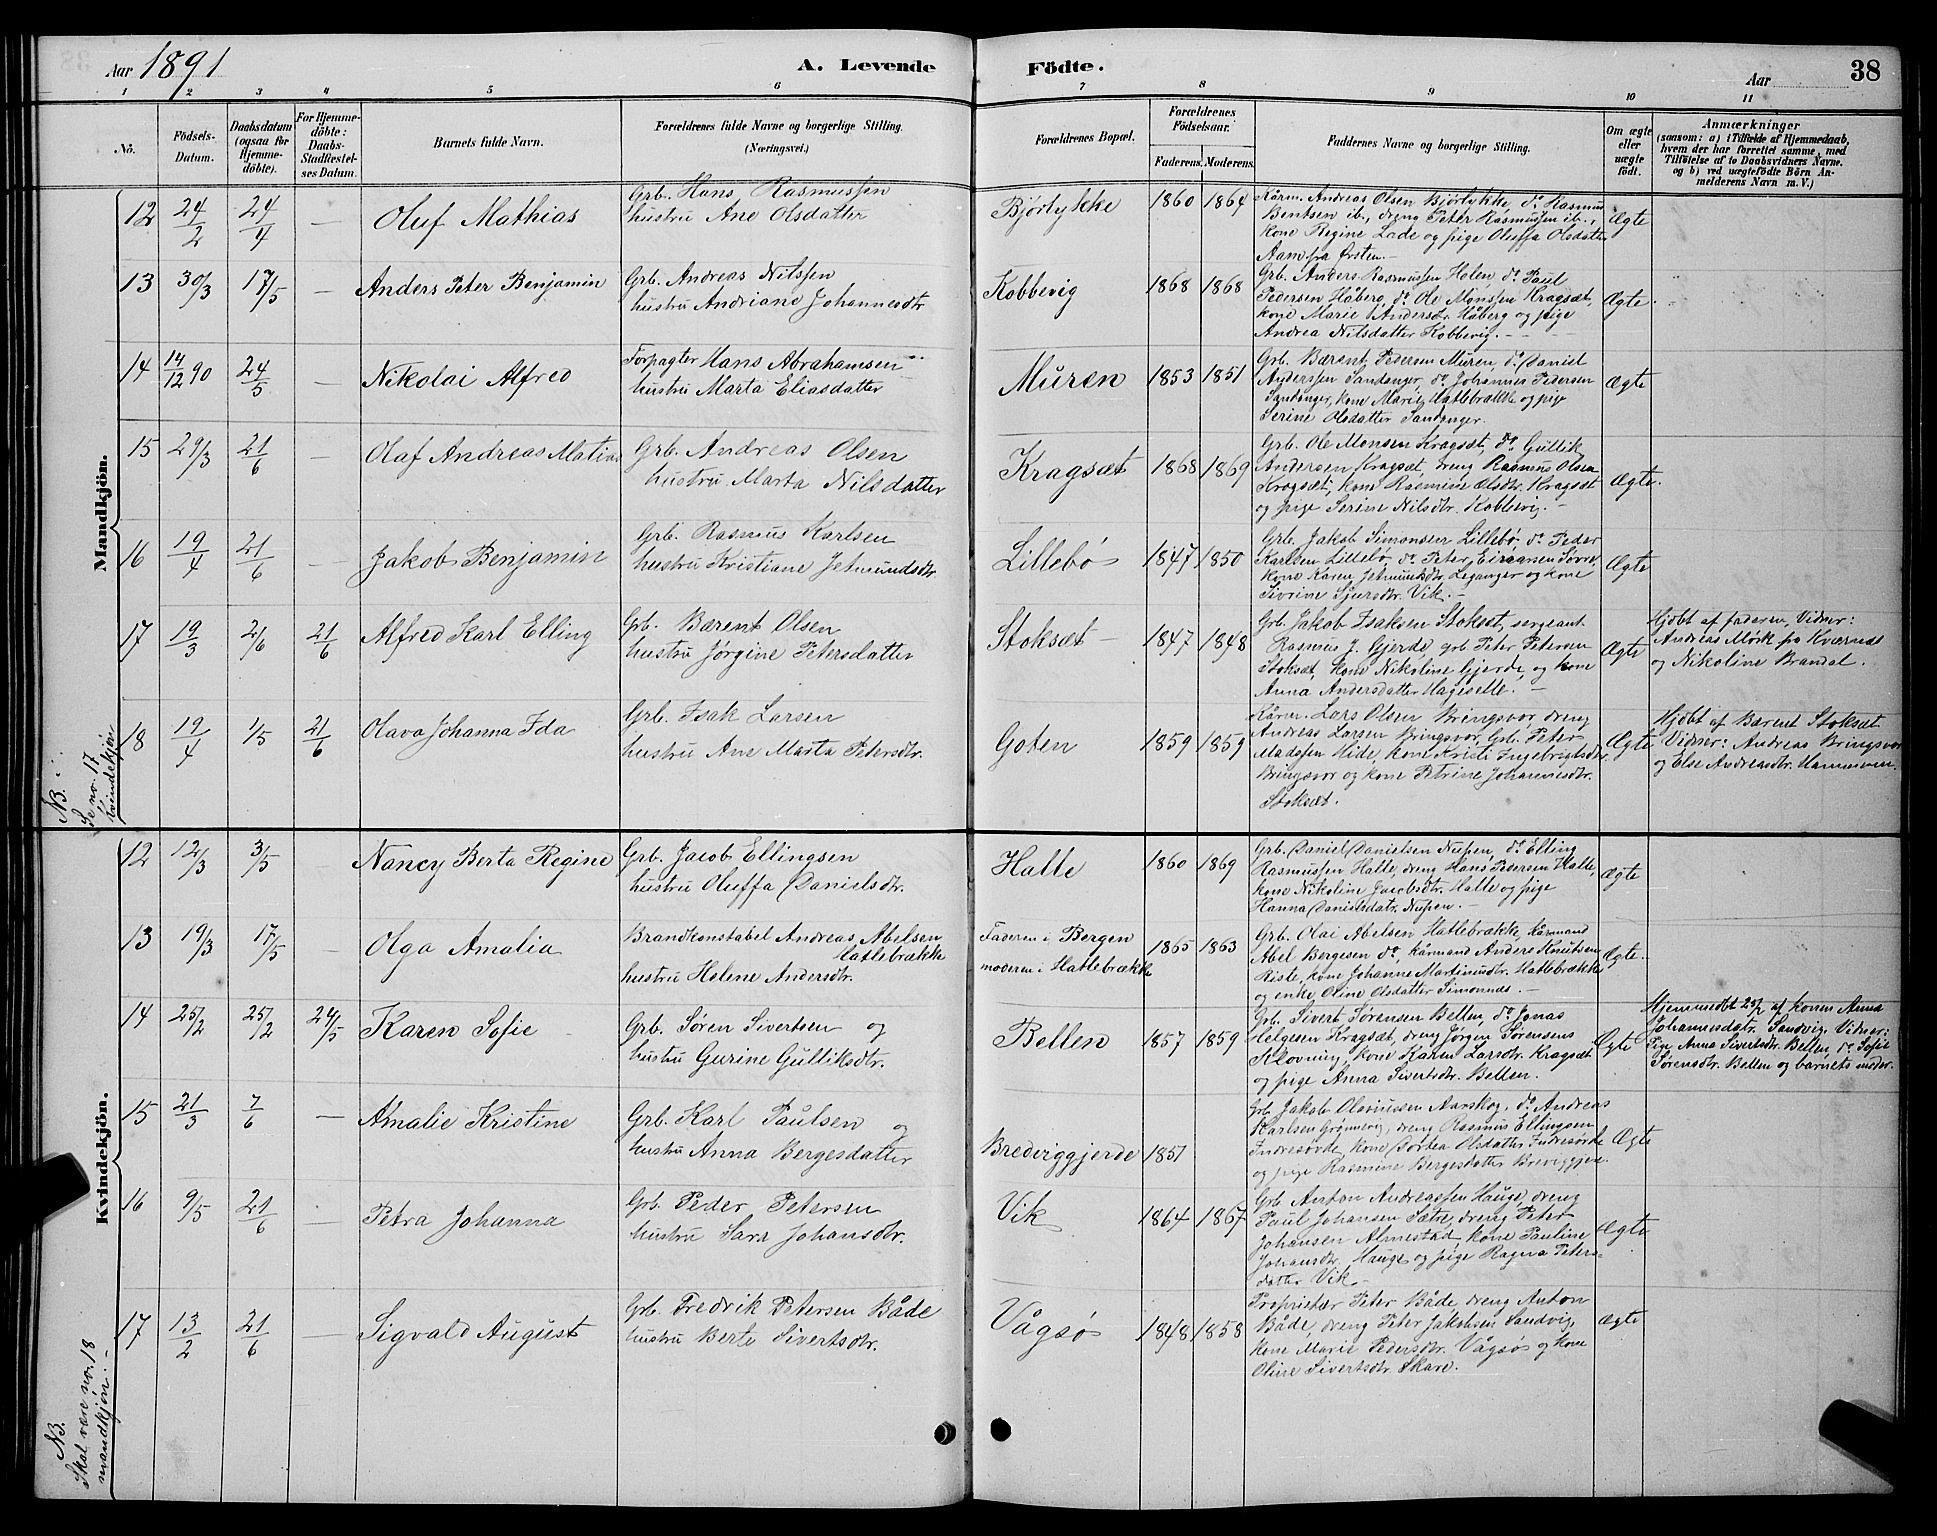 Aar 1891
A. Levende Födte.
Aar
38
1 2 3 4 5 6 7 8 9 10 11
No.
Födsels-
Datum.
Daabsdatum
(ogsaa for
Hjemme-
döbte).
For Hjemme-
döbte:
Daabs-
Stadfæstel-
ses Datum.
Barnets fulde Navn.
Forældrenes fulde Navne og borgerlige Stilling.
(Næringsvei.)
Forældrenes Bopæl.
Forældrenes
Födselsaar.
Faderens. Moderens.
Faddernes Navne og borgerlige Stilling.
Om ægte
eller
uægte
födt.
Anmærkninger
(saasom: a) i Tilfælde af Hjemmedaab,
hvem der har forrettet samme, med
Tilföielse af to Daabsvidners Navne,
og b) ved uægtefödte Börn An-
melderens Navn m. V.)
Mandkjön.
12 24/2 24/4 — Oluf Mathias
Grb. Hans Rasmussen
hustru Ane Olsdatter
Bjørlykke 1860 1864
Kårm. Andreas Olsen Bjørlykke, do Rasmus
Bentsen ib., dreng Peter Rasmussen ib.,
kone Regine Lade og pige Oluffa Olsdatter
Aam fra Ørsten. —
Ægte
13 30/3 17/5 — Anders Peter Benjamin
Grb. Andreas Nilssen
hustru Andriane Johannesdtr
Kobbevig 1868 1868
Grb. Anders Rasmussen Holen, do Paul
Pedersen Håberg, do Ole Monssen Kragsæt,
kone Marie Andersdr. Håberg og pige
Andrea Nilsdatter Kobbevig. —
Ægte.
14 14/12 90 24/5 — Nikolai Alfred
Forpagter Hans Abrahamsen
hustru Marta Eliasdatter
Muren 1853 1851
Grb. Bærent Pedersen Muren, do Daniel
Anderssen Sandanger, do Johannes Pedersen
Sandanger, kone Marie Hatlebrække og pige
Serine Olsdatter Sandanger.
Ægte
15 29/3 21/6 — Olaf Andreas Matias
Grb. Andreas Olsen
hustru Marta Nilsdatter
Kragsæt 1868 1869
Grb. Ole Monsen Kragsæt, do Gullik
Andersen Kragsæt, dreng Rasmus Olsen
Kragsæt, kone Rasmine Olsdtr. Kragsæt
og pige Serine Nilsdtr. Kobbevig. —
Ægte.
16 19/4 21/6 — Jakob Benjamin
Grb. Rasmus Karlsen
hustru Kristiane Jetmundsdtr
Lillebø 1847 1850
Grb. Jakob Simonsen Lillebø, do Peder
Karlsen Lillebø, do Peter
kone Karen Jetmundsdtr. Leganger og kone
Sivrine Sjursdtr. Vik. —
Ægte
17 19/3 2/6 21/6 Alfred Karl Elling
Grb. Bærent Olsen
hustru Jørgine Petersdatter
Stoksæt — 1847 1848
Grb. Jakob Isaksen Stokset, sergeant
Rasmus J. Gjerde, grb Peter Petersen
Stoksæt, kone Nikoline Gjerde, og kone
Anna Andersdatter Hageselle. —
Ægte
Hjdbt af faderen, Vidner:
Andreas Mørk fra Kværnes
og Nikoline Brandal.
18 19/4 1/5 21/6 Olava Johanna Ida
Grb. Isak Larsen
hustru Ane Marta Petersdtr.
Goten 1859 1859
Kårm. Lars Olsen Bringsvor, dreng
Andreas Larsen Bringsvor, Grb. Peter
Madssen Hide, kone Kristi Ingebrigtsdtr.
Bringsvor og kone Petrine Johannesdtr.
Stoksæt.
Ægte
Hjdbt af Bærent Stoksæt
Vidner: Andreas Bringsvor
og Else Andreasdtr.
NB.:
Se no. 17
kvindekjøn
Kvindekjön.
12 12/3 3/5 — Nancy Berta Regine
Grb. Jacob Ellingsen
hustru Oluffa Danielsdtr.
Halle 1860 1869
Grb. Daniel Danielsen Nupen, do Elling
Rasmussen Halle, dreng Hans Pedersen Halle,
kone Nikoline Jacobsdtr. Halle og pige
Hanna Danielsdatr. Nupen. —
Ægte
13 19/3 17/5 — Olga Amalia
Brandkonstabel Andreas Abelsen
Hatlebrække
hustru Helene Andersdtr.
Faderen i Bergen
moderen i Hatlebrække
1865 1863
Grb. Olai Abelsen Hatlebrække, kårmand
Abel Bergesen do, kårmand Anders Knutsen
Riste, kone Johanne Martinusdtr. Hatlebrække
og enke Oline Olsdatter Simonnes. —
Ægte.
14 25/2 25/2 24/5 Karen Sofie
Grb. Søren Sivertsen og
hustru Gurine Gulliksdtr.
Bellen 1857 1859
Grb. Sivert Sørensen Bellen, do Jonas
Helgesen Kragsæt, dreng Jørgen Sørensens
Kløvning, kone Karen Larsdtr. Kragsæt
og pige Anna Sivertsdtr. Bellen.
Ægte
Hjemmedbt 25/2 af konen Anna
Johannesdatr. Sandvig. Vidner:
Pige Anna Sivertsdtr. Bellen, do Sofie
Sørensdtr. Bellen og barnets moder.
15 21/3 7/6 — Amalie Kristine
Grb. Karl Paulsen og
hustru Anna Bergesdatter
Bredviggjerde 1851
Grb. Jakob Olavussen Aarskog, do Andreas
Karlsen Grønnevig, dreng Rasmus Ellingsen
Indresørde, kone Dortea Olsdatter Indresørde
og pige Rasmine Bergesdatter Breviggjer.
Ægte
16 9/5 21/6 — Petra Johanna
Grb. Peder Petersen
hustru Sara Johansdtr.
Vik 1864 1867
Grb. Anton Andreassen Hauge, dreng
Paul Johansen Sætre, dreng Peter
Johansen Almestad, kone Pauline
Johansdtr. Hauge og pige Ragna Peters-
datter Vik —
Ægte
17 13/2 21/6 — Sigvald August
Grb. Fredrik Petersen Både
hustru Berte Sivertsdtr.
Vågsø 1848 1858
Proprietær Peter Både, dreng Anton
Både, dreng Peter Jakobsen Sandvig,
kone Marie Pedersdtr. Vågsø og kone
Oline Sivertsdtr. Skare.
Ægte
NB.
Skal være no. 18
mandkjøn. —